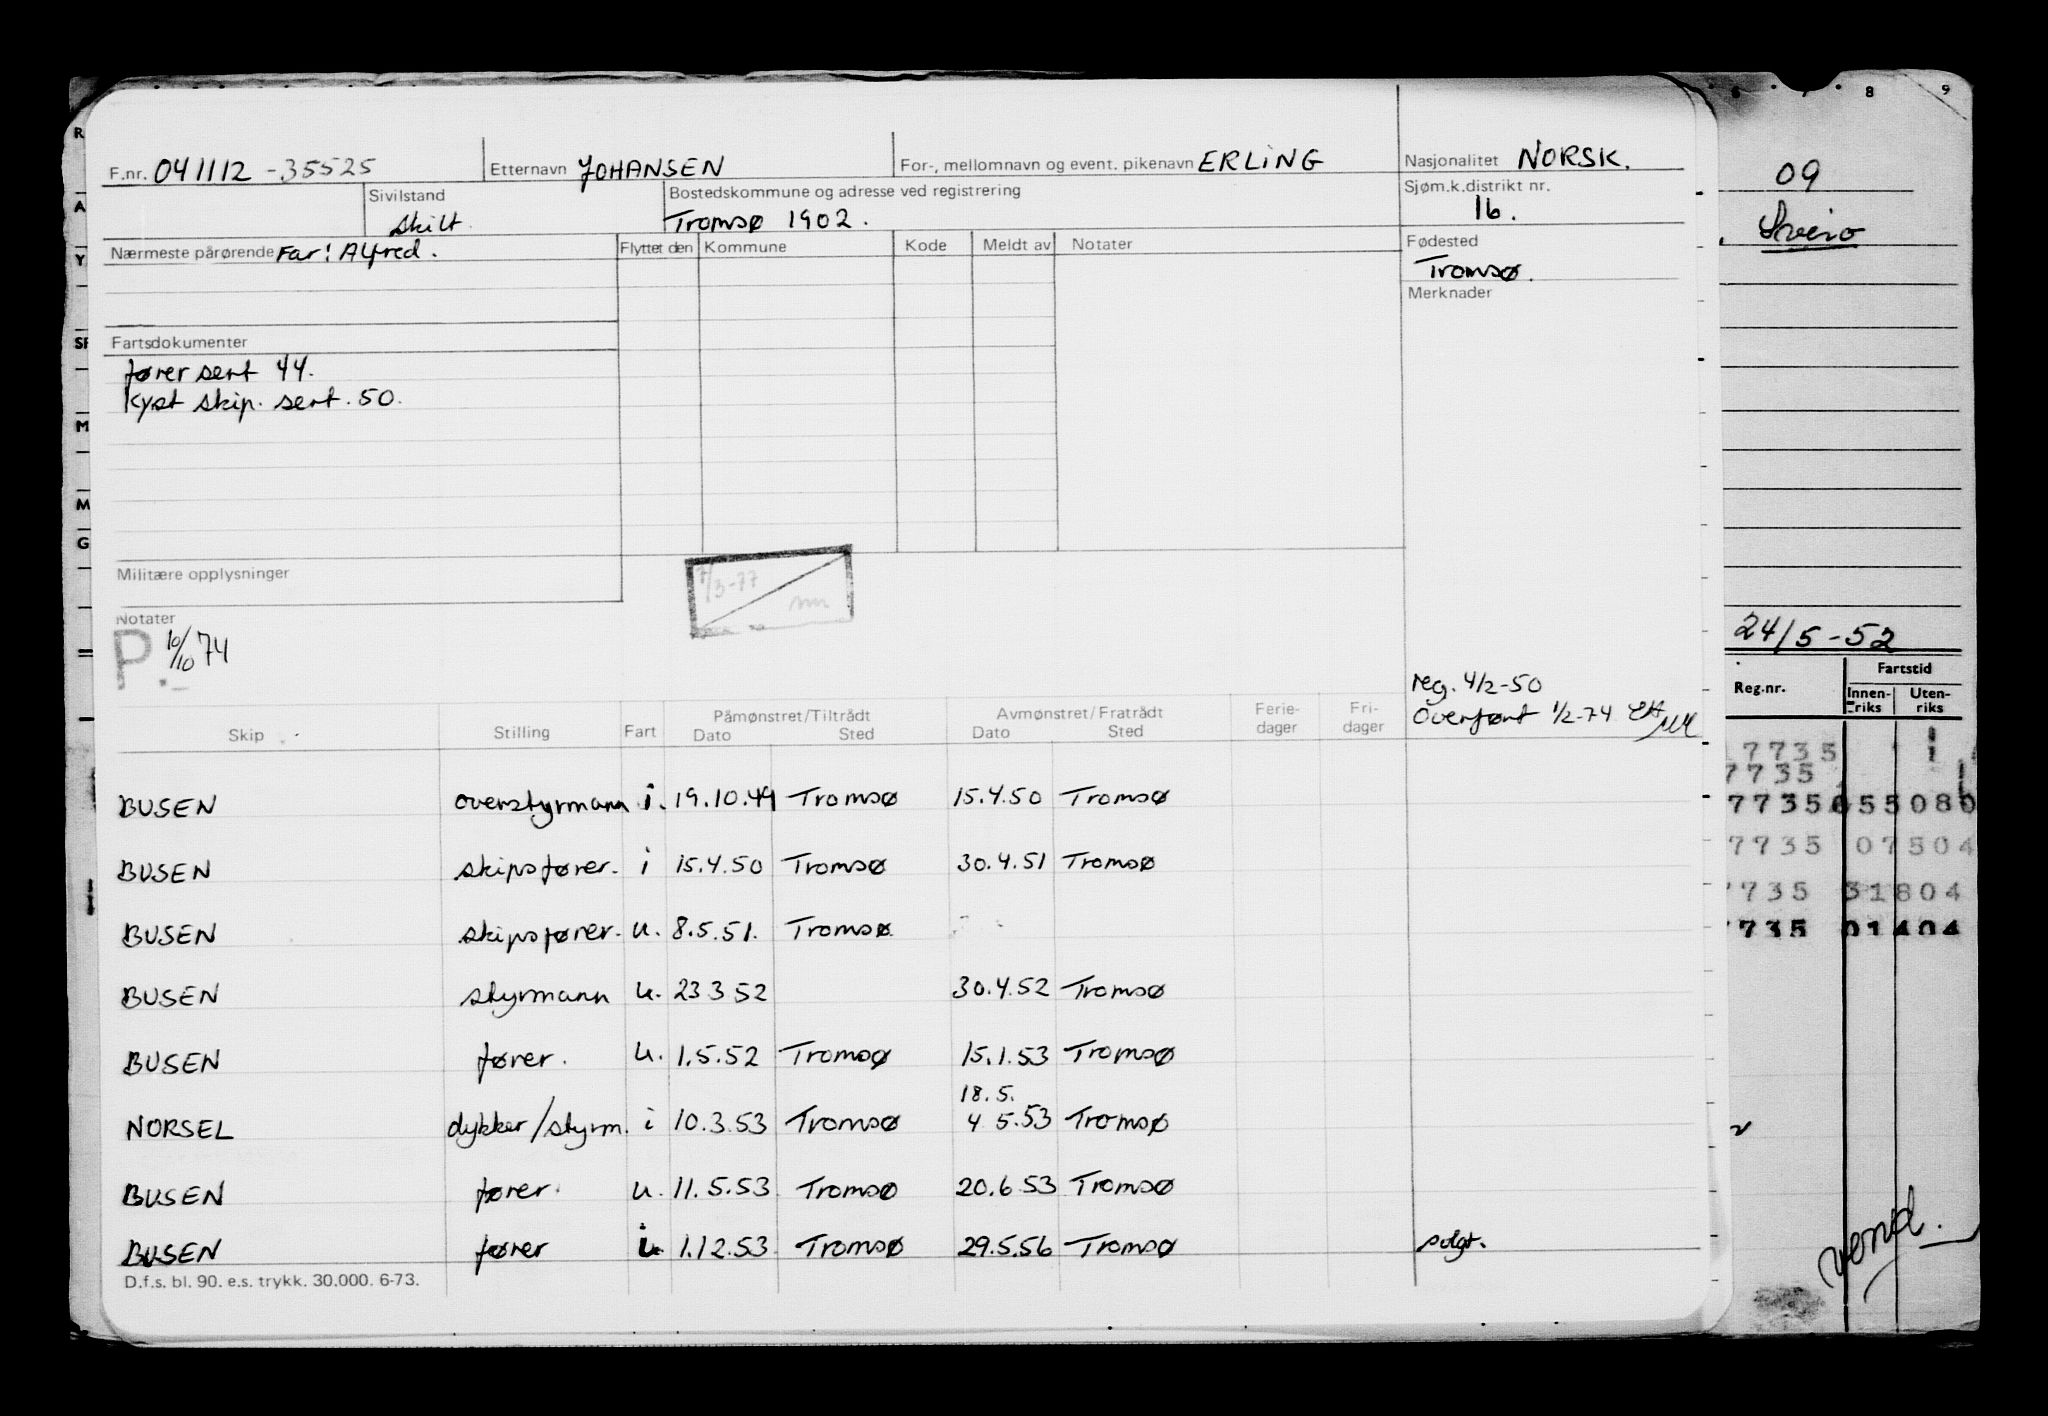 F.nr. 041112 -35525 Etternavn JOHANSEN For-, mellomnavn og event. pikenavn ERLING Nasjonalitet NORSK.
Sivilstand Bostedskommune og adresse ved registrering Sjøm.k.distrikt nr.
skilt Tromsø 1902. 16.
Nærmeste pårørende Far: Alfred. Flyttet den Kommune Kode Meldt av Notater Fødested
Tromsø.
Merknader
Fartsdokumenter
fører sert 44.
kyst skip. sert. 50.
Militære opplysninger
7/3-77
Notater
P. 10/10 74
reg. 4/2-50
Overført 1/2-74
Skip Stilling Fart Påmønstret/Tiltrådt Avmønstret/Fratrådt Ferie- Fri-
Dato Sted Dato Sted dager dager
BUSEN overstyrmann i. 19.10.49 Tromsø 15.4.50 Tromsø
BUSEN skipsfører. i 15.4.50 Tromsø 30.4.51 Tromsø
BUSEN skipsfører. u. 8.5.51. Tromsø
BUSEN styrmann u. 23 3 52 30.4.52 Tromsø
BUSEN fører. u. 1.5.52 Tromsø 15.1.53 Tromsø
18.5.
NORSEL dykker/styrm. i 10.3.53 Tromsø 4 5.53 Tromsø
BUSEN fører. u. 11.5.53 Tromsø 20.6 53 Tromsø
BUSEN fører i. 1.12.53. Tromsø 29.5.56 Tromsø solgt.
D.f.s. bl. 90. e.s. trykk. 30.000. 6-73.
R
A
Y
M
M
G
6 7 8 9
09
Sveio
24/5-52
Reg.nr. Fartstid
Innen-riks Uten-riks
7735
7735
7735 055080
7735 07504
7735 31804
7735 01404
vend.